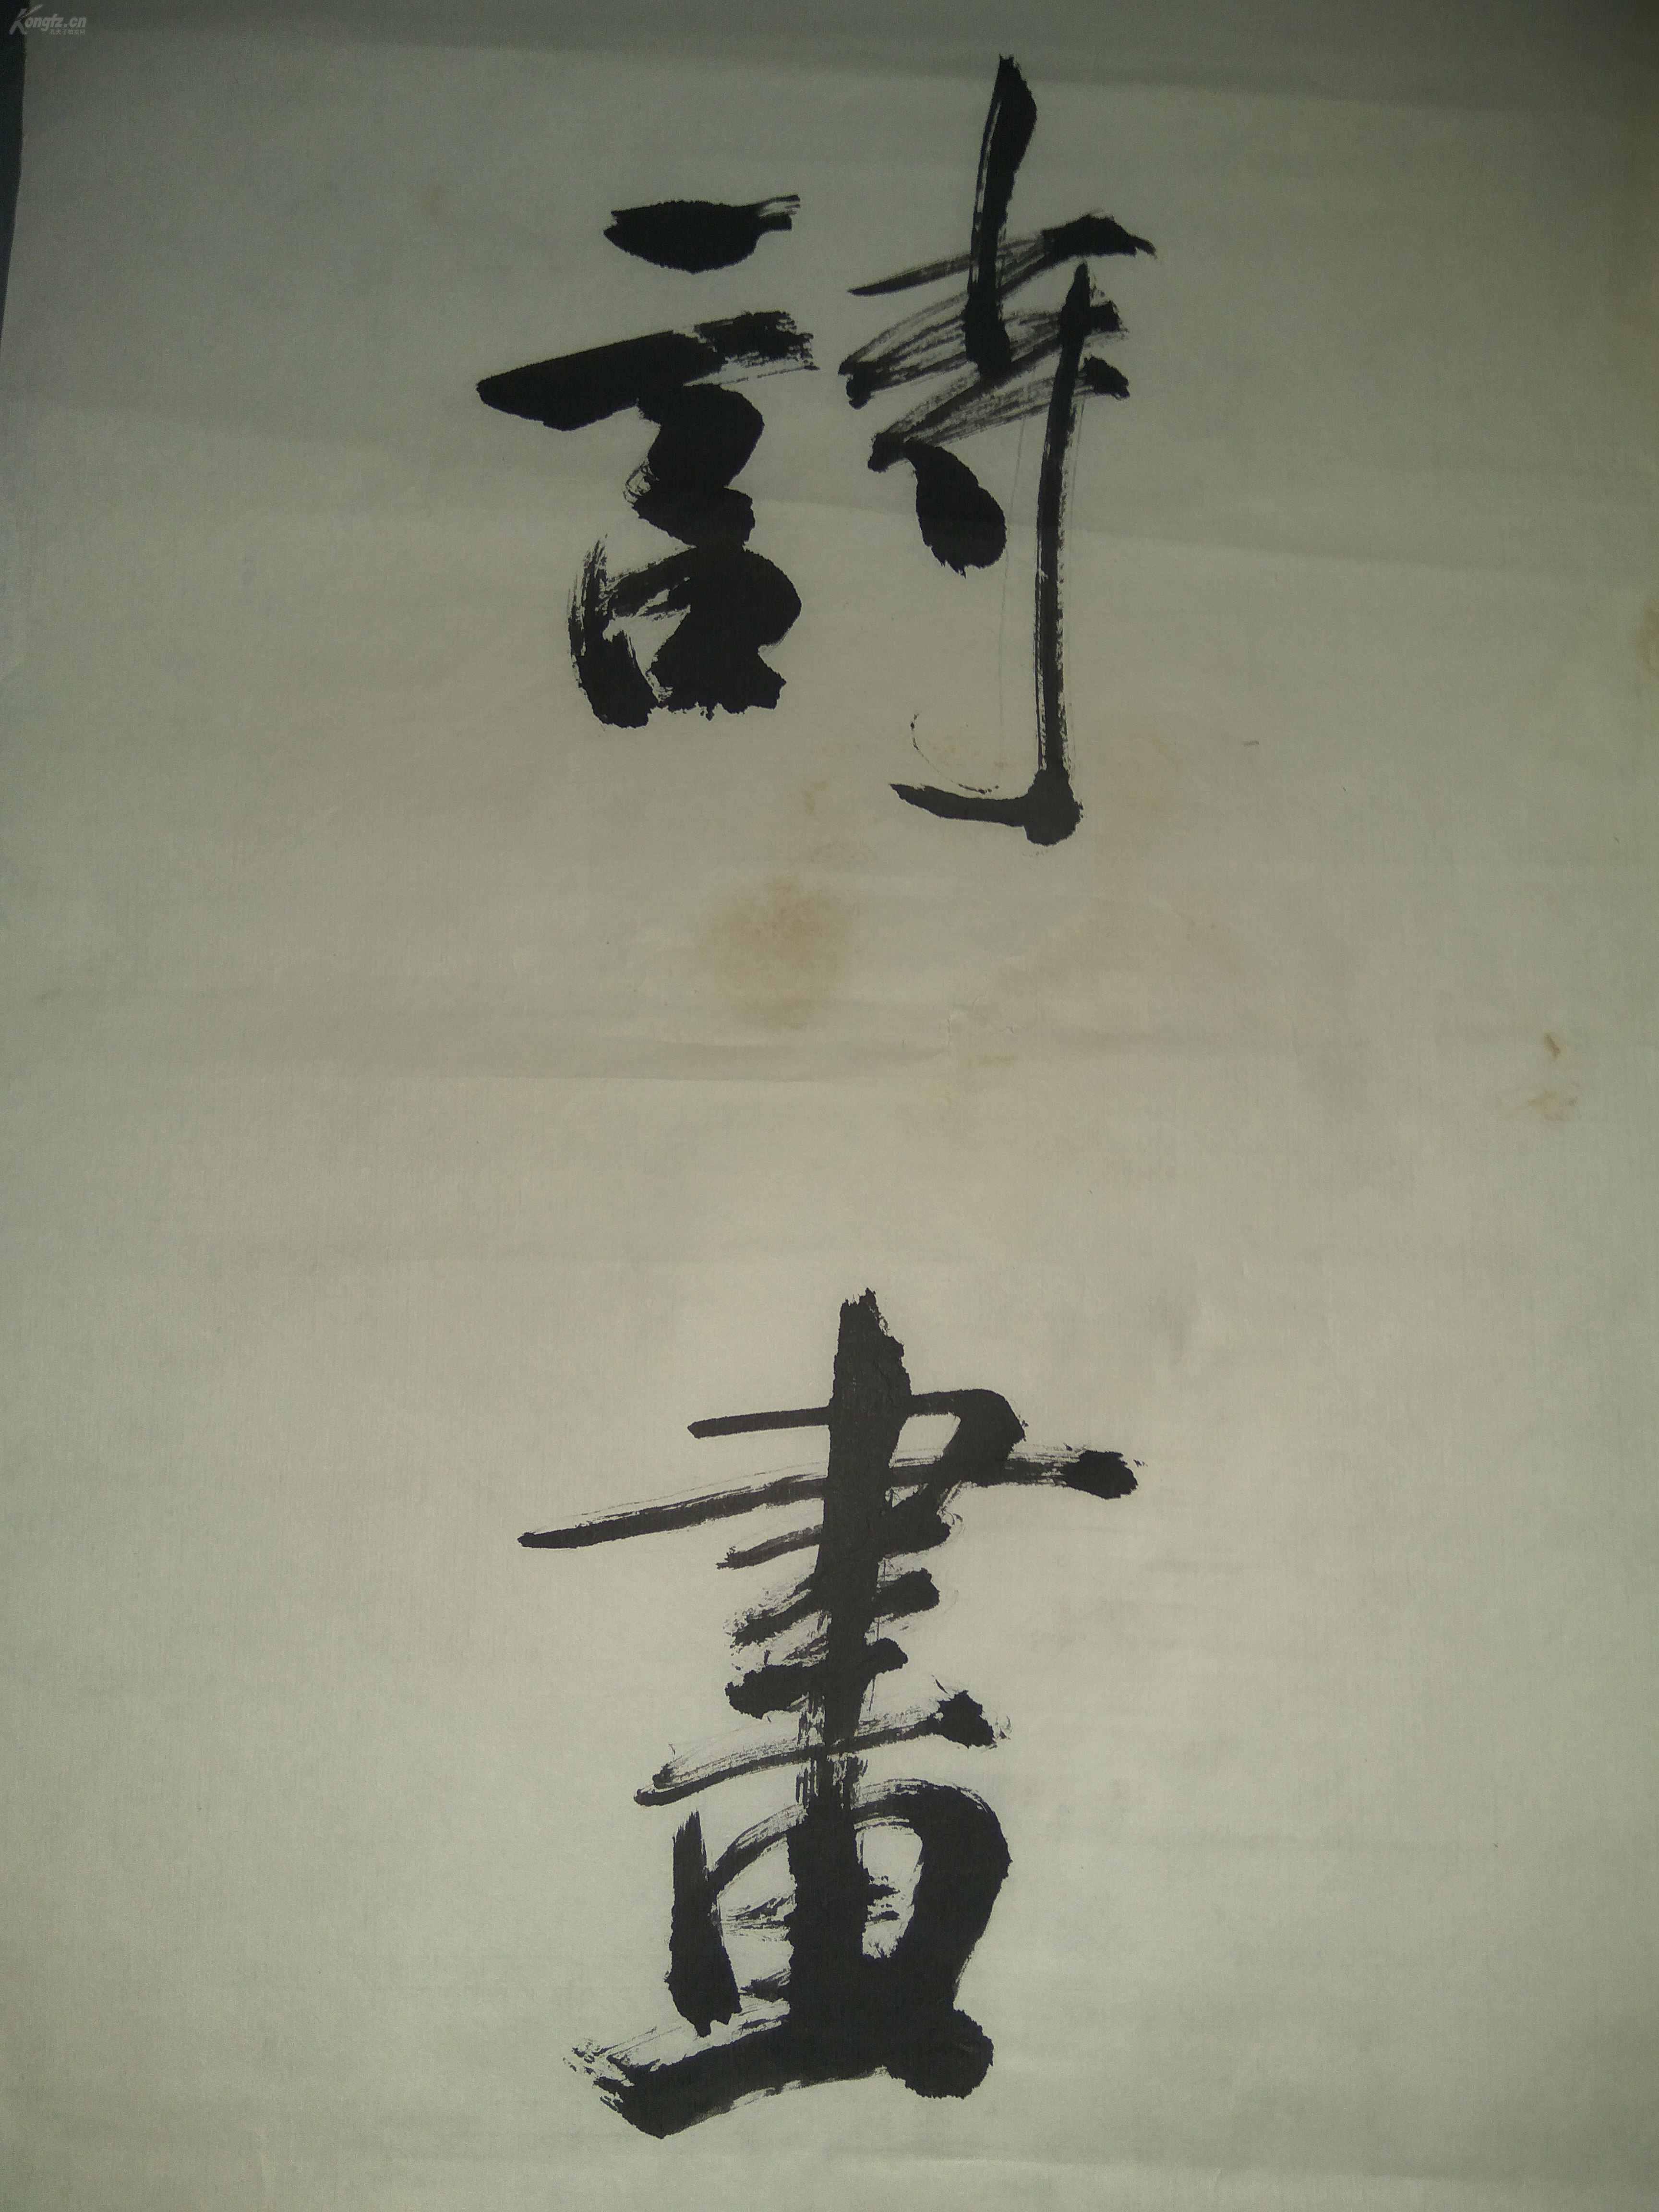 Kongfz.cn
詩
畫